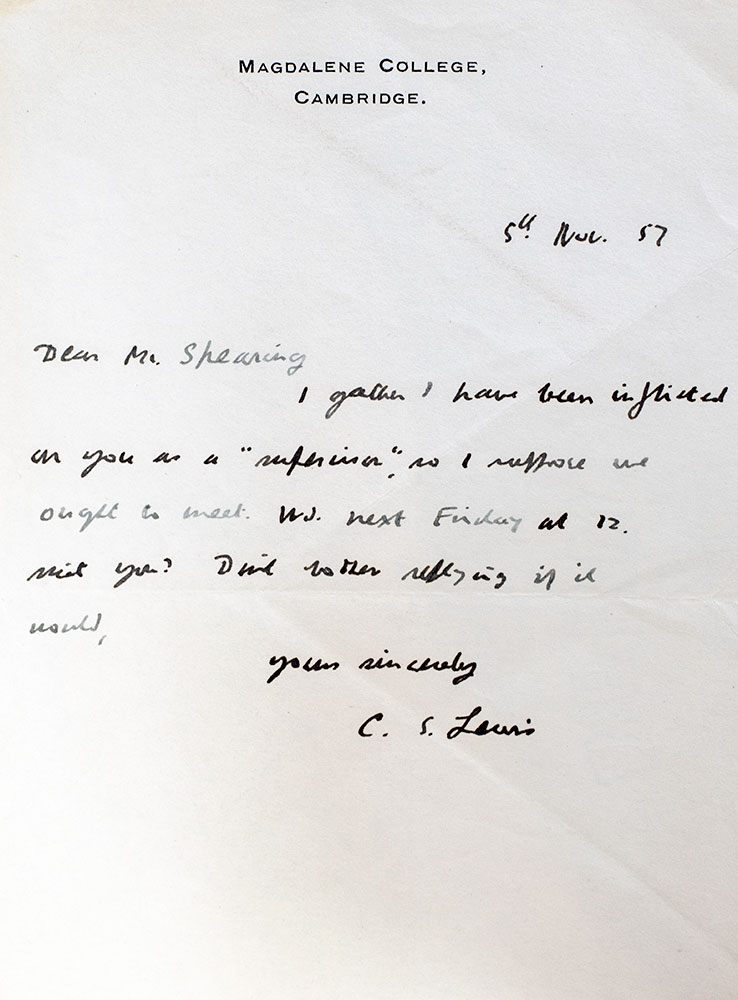 MAGDALENE COLLEGE,
CAMBRIDGE.
5th Nov. 57
Dear Mr. Spearing
I gather I have been inflicted
on you as a "supervisor", so I suppose we
ought to meet. Wd. next Friday at 12.
suit you? Don't bother replying if it
would,
yours sincerely
C. S. Lewis